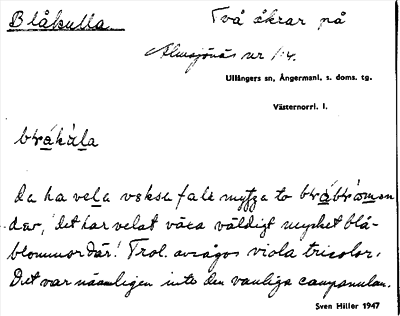 Blåkulla
Två åkrar på
Almsjönäs nr 1:4.
Ullångers sn, Ångermanl. s. doms. tg.
Västernorrl. l.
blåkùla
Da ha vela veksa fale mytje to blåblòmen
där, 'det har velat växa väldigt mycket blå-
blommor där'. Trol. avsågos viola tricolor.
Det var nämligen inte den vanliga campanulan.
Sven Hiller 1947